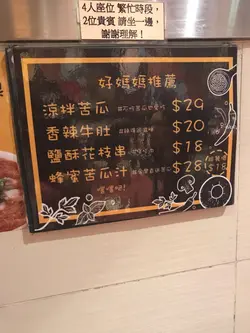 4人座位 繁忙時段,
2位貴賓 請坐一邊,
謝謝理解!
好媽媽推薦
涼拌苦瓜 $29
香辣牛肚 $20
鹽酥花枝串 $18
蜂蜜苦瓜汁 $28 $18
嚐嚐吧!